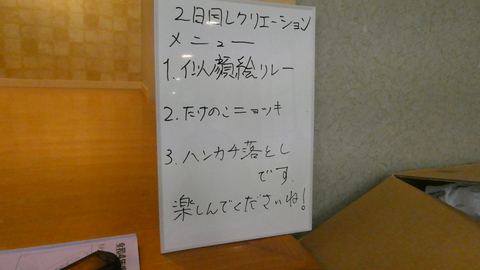 2日目レクリエーション
メニュー
1.似顔絵リレー
2.たけのこニョッキ
3.ハンカチ落とし
です
楽しんでくださいね!